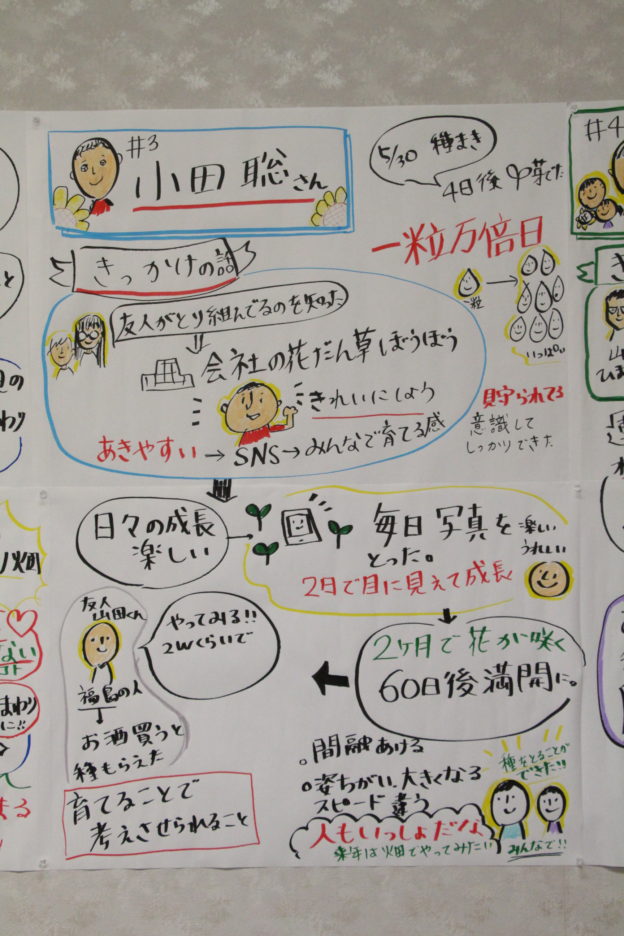 #3
小田 聡さん
5/30 種まき
4日後 芽でた
一粒万倍日
一粒
いっぱい
きっかけの話
友人がとり組んでるのを知った
会社の花だん草ぼうぼう
きれいにしよう
あきやすい→SNS→みんなで育てる感
見守られてる
意識して
しっかりできた
日々の成長
楽しい
毎日写真を
とった。
楽しい
うれしい
2日で目に見えて成長
2ヶ月で花が咲く
60日後満開に。
友人
山田くん
やってみる!!
2Wくらいで
福島の人
お酒買うと
種もらえた
育てることで
考えさせられること
。間融あける
。姿ちがい、大きくなる
スピード違う
人もいっしょだな
来年は畑でやってみたい
種をとることが
できた!!
みんなで!!
#4